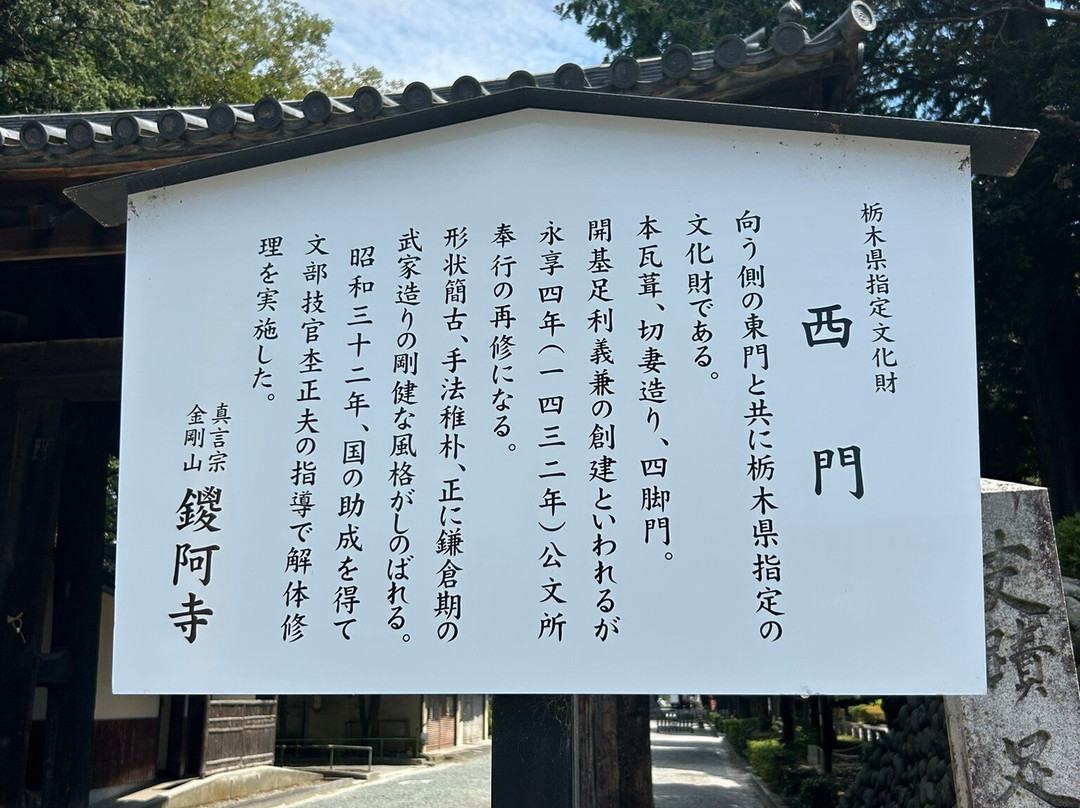 栃木県指定文化財
西門
向う側の東門と共に栃木県指定の
文化財である。
本瓦葺、切妻造り、四脚門。
開基足利義兼の創建といわれるが
永享四年(一四三二年)公文所
奉行の再修になる。
形状簡古、手法稚朴、正に鎌倉期の
武家造りの剛健な風格がしのばれる。
昭和三十二年、国の助成を得て
文部技官杢正夫の指導で解体修
理を実施した。
真言宗
金剛山
鑁阿寺
史蹟足